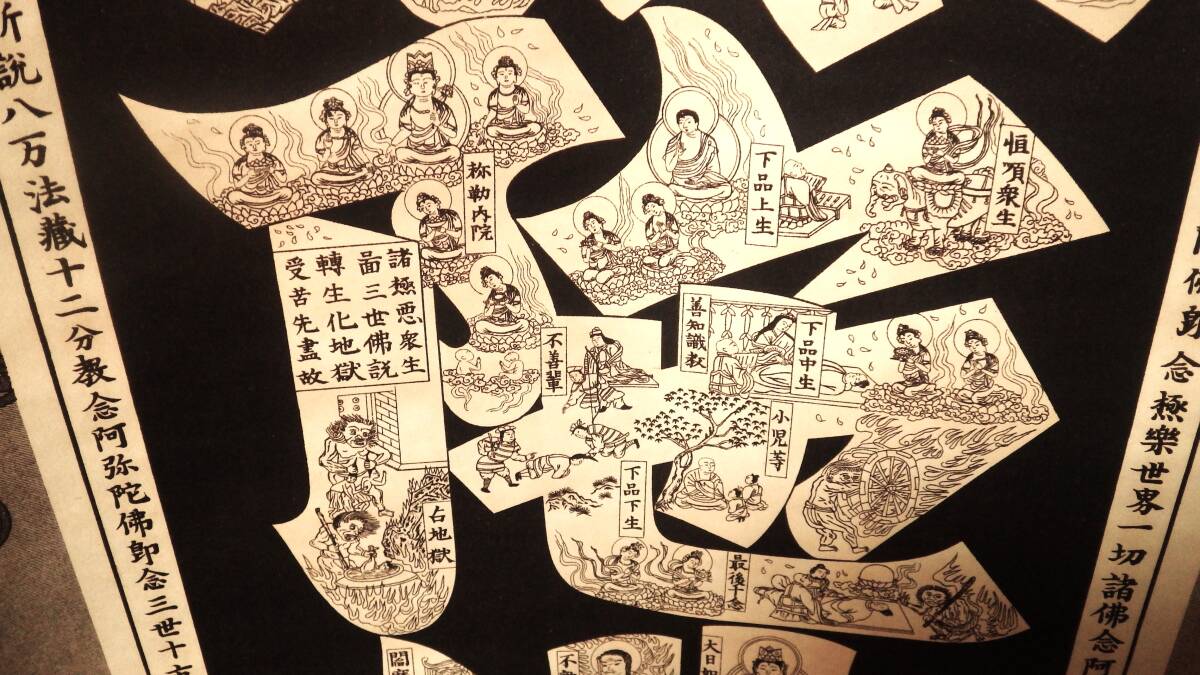 佛即念極樂世界一切諸佛念阿
恒順衆生
下品上生
弥勒内院
諸極悪衆生
三世佛説
轉生化地獄
受苦先盡故
下品中生
善知識教
不善輩
小児等
下品下生
占地獄
最後十念
大日如
不
閻
所說八万法藏十二分教念阿弥陀佛即念三世十